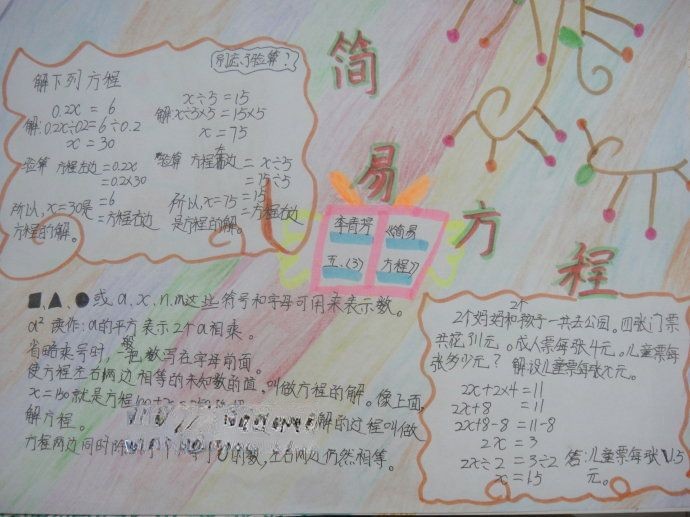 简易方程
别忘了验算!
解下列方程
0.2x = 6
解:0.2x÷0.2=6÷0.2
x = 30
验算 方程左边=0.2x
=0.2×30
=6
所以,x=30是=方程右边
方程的解。
x÷5=15
解x÷5×5=15×5
x = 75
验算 方程左边= x÷5
=75÷5
=15
所以,x=75=方程右边
是方程的解。
李青芳
五、(3)
《简易
方程》
■、▲、●或a.x.n.m这些符号和字母可用来表示数。
a² 读作:a的平方表示2个a相乘。
省略乘号时,一般把数写在字母前面。
使方程左右两边相等的未知数的值,叫做方程的解。像上面,
x=150就是方程
解方程。 解的过程叫做
方程两边同时除 的数,左右两边仍然相等。
2个妈妈和2个孩子一共去公园。四张门票
共花11元。成人票每张4元。儿童票每
张多少元? 解设儿童票每张x元。
2x+2×4=11
2x+8 =11
2x+8-8=11-8
2x=3
2x÷2=3÷2 答:儿童票每张1.5
x=1.5 元。